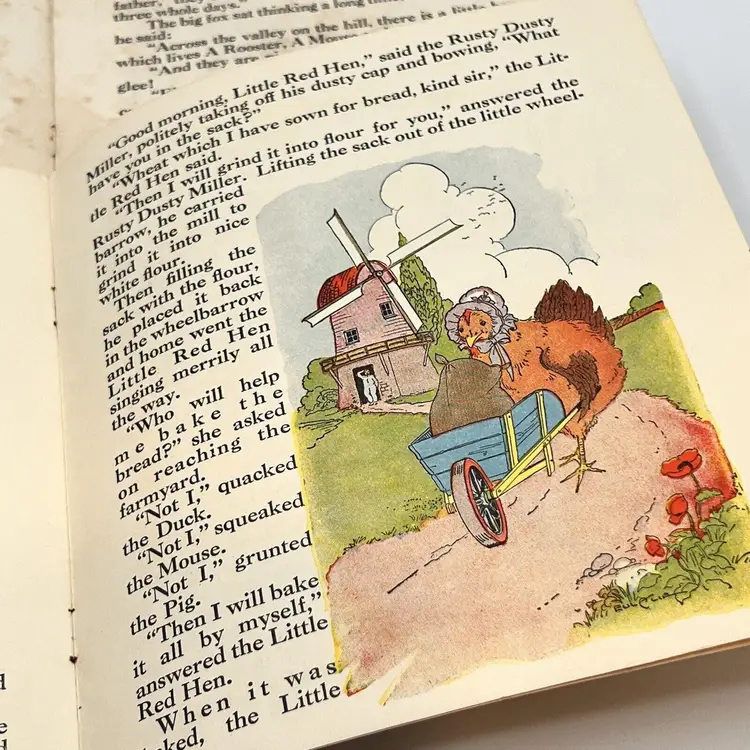 father, they
three whole days.
The big fox sat thinking a long
he said:
"Across the valley on the hill, there is a little
which lives A Rooster, A Mouse
"And they are
glee!
"Good morning, Little Red Hen," said the Rusty Dusty
Miller, politely taking off his dusty cap and bowing, "What
have you in the sack?"
"Wheat which I have sown for bread, kind sir," the Lit-
tle Red Hen said.
"Then I will grind it into flour for you," answered the
Rusty Dusty Miller. Lifting the sack out of the little wheel-
barrow, he carried
it into the mill to
grind it into nice
white flour.
Then filling the
sack with the flour,
he placed it back
in the wheelbarrow
and home went the
Little Red Hen
singing merrily all
the way.
"Who will help
me bake the
bread?" she asked
on reaching the
farmyard.
"Not I," quacked
the Duck.
"Not I," squeaked
the Mouse.
"Not I," grunted
the Pig.
"Then I will bake
it all by myself,"
answered the Little
Red Hen.
When it was
the Little